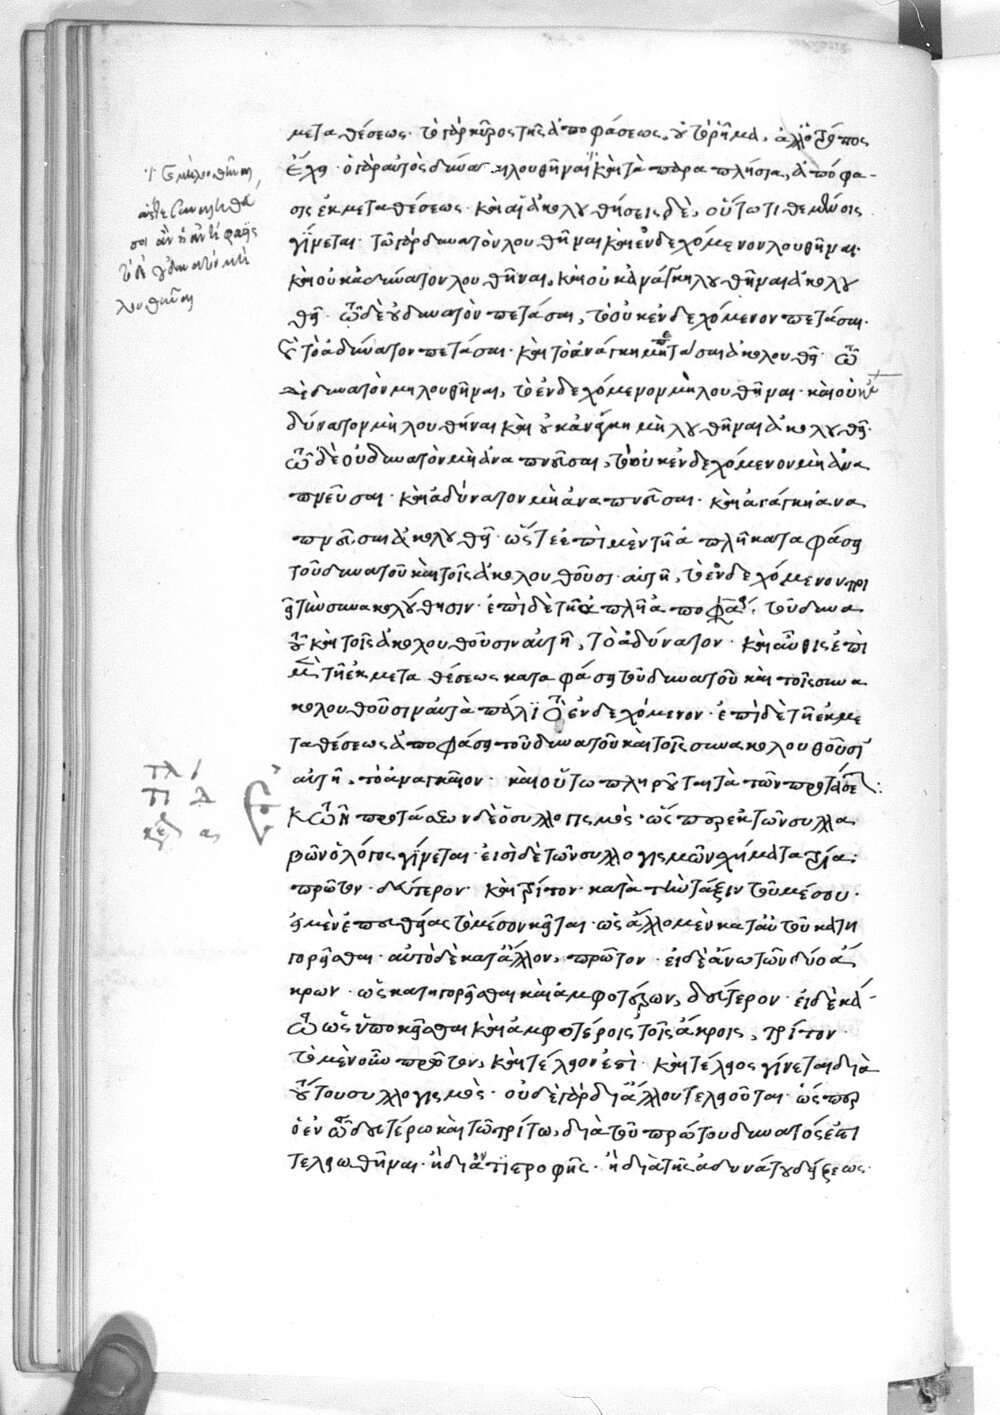 μεταθέσεως· τὸ γὰρ κῦρος τῆς ἀποφάσεως, οὐ τὸ ῥῆμα, ἀλλ' ὁ τρόπος
ἔχει· ὁ γὰρ αὐτὸς δύναται λουθῆναι καὶ τὰ παραπλήσια, ἀπόφα-
σις ἐκ μεταθέσεως· καὶ αἱ ἀκολουθήσεις δὲ, οὕτω τιθεμένοις
γίνεται· τῶ γὰρ δυνατὸν λουθῆναι καὶ ἐνδεχόμενον λουθῆναι·
καὶ οὐκ ἀδύνατον λουθῆναι, καὶ οὐκ ἀνάγκη λουθῆναι ἀκολου
θεῖ· τῶ δὲ οὐ δυνατὸν πετάσαι, τὸ οὐκ ἐνδεχόμενον πετάσαι·
καὶ τὸ ἀδύνατον πετάσαι· καὶ τὸ ἀνάγκη μὴ πετάσαι ἀκολουθεῖ· τῶ
δὲ δυνατὸν μὴ λουθῆναι, τὸ ἐνδεχόμενον μὴ λουθῆναι· καὶ οὐκ ἀ
δύνατον μὴ λουθῆναι καὶ οὐκ ἀνάγκη μὴ λουθῆναι ἀκολουθεῖ·
τῶ δὲ οὐ δυνατὸν μὴ ἀναπνεῦσαι, τὸ οὐκ ἐνδεχόμενον μὴ ἀνα
πνεῦσαι· καὶ ἀδύνατον μὴ ἀναπνεῦσαι· καὶ ἀνάγκη ἀνα
πνεῦσαι ἀκολουθεῖ· ὥστε ἐπὶ μὲν τῆ ἁπλῆ καταφάσει
τοῦ δυνατοῦ καὶ τοῖς ἀκολουθοῦσι αὐτῆ, τὸ ἐνδεχόμενον ποι
εῖ τὴν συνακολούθησιν· ἐπὶ δὲ τῆ ἁπλῆ ἀποφάσει, τοῦ δυνα
τοῦ καὶ τοῖς ἀκολουθοῦσιν αὐτῆ, τὸ ἀδύνατον· καὶ αὖθις ἐπὶ
μὲν τῆ ἐκ μεταθέσεως καταφάσει τοῦ δυνατοῦ καὶ τοῖς συνα
κολουθοῦσιν αὐτὰ πάλιν τὸ ἐνδεχόμενον· ἐπὶ δὲ τῆ ἐκ με
ταθέσεως ἀποφάσει τοῦ δυνατοῦ καὶ τοῖς συνακολουθοῦσιν
αὐτῆ, τὸ ἀναγκαῖον· καὶ οὕτω πληροῦται τὰ τῶν προτάσεων:
Κ τῶν προτάσεων δὲ ὁ συλλογισμὸς· ὥσπερ ἐκ τῶν συλλα
βῶν ὁ λόγος γίνεται· εἰσὶ δὲ τῶν συλλογισμῶν σχήματα τρία:
πρῶτον· δεύτερον· καὶ τρίτον· κατὰ τὴν τάξιν τοῦ μέσου·
εἰ μὲν ἐπ' εὐθείας τὸ μέσον κεῖται· ὡς ἄλλο μὲν κατ' αὐτοῦ κατη
γορεῖσθαι· αὐτὸ δὲ κατ' ἄλλον, πρῶτον· εἰ δὲ ἄνω τῶν δύο ἄ
κρων· ὡς κατηγορεῖσθαι κατ' ἀμφοτέρων, δεύτερον· εἰ δὲ κά-
τω ὡς ὑποκεῖσθαι καὶ ἀμφοτέροις τοῖς ἄκροις, τρίτον·
τὸ μὲν οὖν πρῶτον, καὶ τέλειον ἐστὶ· καὶ τέλειος γίνεται διὰ
τούτου συλλογισμὸς· οὐδὲ γὰρ δι' ἄλλου τελειοῦται· ὥσπερ
ὁ ἐν τῶ δευτέρω καὶ τῶ τρίτω, διὰ τοῦ πρώτου δυνατὸς ἐστι
τελειωθῆναι· ἢ δι' ἀντιστροφῆς· ἢ διὰ τῆς ἀδυνάτου δείξεως·